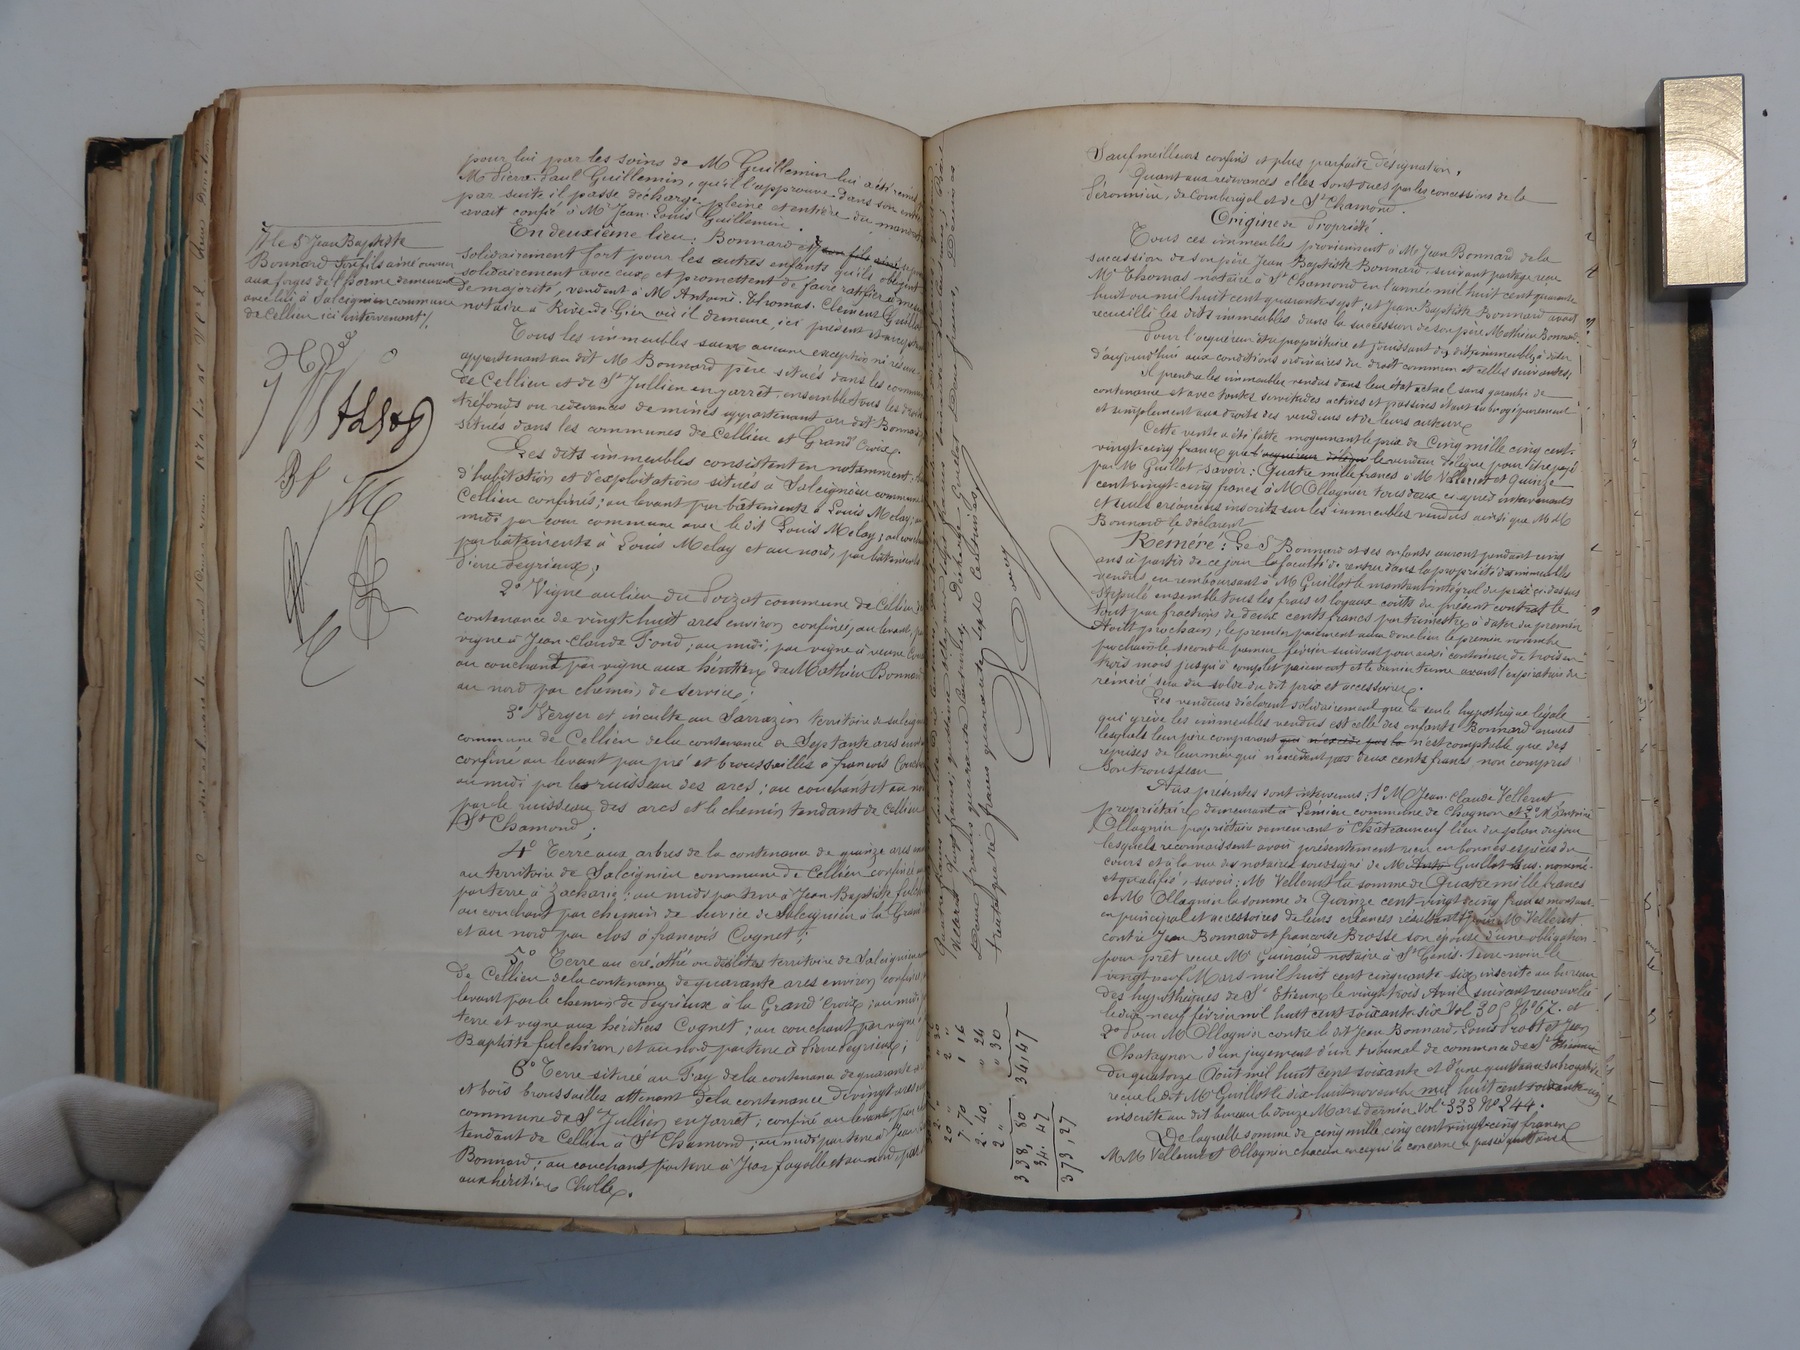 pour lui par les soins de M Guillemin lui a été remis
Me Pierre Paul Guillemin, qu'il l'approuve dans son entier
par suite il passe décharge pleine et entière du mandat
avait confié à Me Jean Louis Guillemin.
En deuxième lieu: Bonnard et son fils ainé
solidairement fort pour les autres enfants qu'ils obligent
solidairement avec eux et promettent de faire ratifier à
de majorité, vendent à M Antoine Thomas Clément Guillot
notaire à Rive de Gier où il demeure, ici présent et acceptant
Tous les immeubles sans aucune exception ni réserve
appartenant au dit M Bonnard père situés dans les communes
de Cellieu et de St Jullien en Jarrêt, ensemble tous les droits
tréfonds ou redevances de mines appartenant au dit Bonnard
situés dans les communes de Cellieu et Grand' Croix.
Les dits immeubles consistent en notamment:
d'habitation et d'exploitations situés à Salcignieu commune
Cellieu confinés; au levant par bâtiments à Louis Melay; au
midi par cour commune avec le dit Louis Melay; au couchant
par bâtiments à Louis Melay et au nord, par bâtiments
Pierre Peyrieux;
2° Vigne au lieu du commune de Cellieu
contenance de vingt huit ares environ confinée; au levant, par
vigne à Jean Claude Fond; au midi, par vigne à veuve
au couchant par vigne aux héritiers de Mathieu Bonnard
au nord par chemin de service;
3° Verger et inculte au Sarrazin territoire de Salcignieu
commune de Cellieu de la contenance de Septante ares environ
confiné au levant par pré et broussailles à françois
au midi par le ruisseau des arcs; au couchant et au nord
par le ruisseau des arcs et le chemin tendant de Cellieu
St Chamond;
4° Terre aux arbres de la contenance de quinze ares environ
au territoire de Salcignieu commune de Cellieu confinée au
par terre à Zacharie; au midi par terre à Jean Baptiste fulchiron
au couchant par chemin de service de Salcignieu à la Grand
et au nord par clos à françois Cognet;
5° Terre au territoire de Salcignieu
de Cellieu de la contenance de quarante ares environ confinée
levant par le chemin de Peyrieux à la Grand' Croix; au midi
terre et vigne aux héritiers Cognet; au couchant par vigne à
Baptiste fulchiron, et au nord par terre à Pierre Peyrieux;
6° Terre située au Fay de la contenance de quarante
et bois broussailles attenant de la contenance de vingt ares
commune de St Jullien en Jarret; confiné au levant par
tendant de Cellieu à St Chamond; au midi par terre à Jean
Bonnard; au couchant par terre à Jean fayolle et au nord par
aux héritiers Cholle.
le Sr Jean Baptiste
Bonnard son fils ainé ouvrier
aux forges de l'horme demeurant
avec lui à Salcignieu commune
de Cellieu ici intervenant
Sauf meilleurs confins et plus parfaite désignation.
Quant aux redevances elles sont dues par les concessions de la
Péronnière, de Comberigol et de St Chamond.
Origine de Propriété.
Tous ces immeubles proviennent à Me Jean Bonnard de la
succession de son père Jean Baptiste Bonnard, suivant partage reçu
Me Thomas notaire à St Chamond en l'année mil huit cent quarante
huit ou mil huit cent quarante sept, et Jean Baptiste Bonnard avait
recueilli les dits immeubles dans la succession de son père Mathieu Bonnard.
Pour l'acquéreur être propriétaire et jouissant des dits immeubles à dater
d'aujourd'hui aux conditions ordinaires du droit commun et celles suivantes:
Il prendra les immeubles vendus dans leur état actuel sans garantie de
contenance et avec toutes servitudes actives et passives étant subrogé purement
et simplement aux droits des vendeurs et de leurs auteurs
Cette vente a été faite moyennant le prix de Cinq mille cinq cent
vingt-cinq francs que l'acquéreur délègue le vendeur délègue pour être payé
par M Guillot savoir: Quatre mille francs à M Vellerut et Quinze
cent vingt-cinq francs à M Ollagnier tous deux ci après intervenants
et seuls créanciers inscrits sur les immeubles vendus ainsi que MM
Bonnard le déclarent
Réméré: Le Sr Bonnard et ses enfants auront pendant cinq
ans à partir de ce jour la faculté de rentrer dans la propriété des immeubles
vendus en remboursant à M Guillot le montant intégral du prix ci-dessus
stipulé ensemble tous les frais et loyaux coûts du présent contrat le
tout par fractions de deux cents francs par trimestre à dater du premier
Août prochain, le premier paiement aura donc lieu le premier novembre
prochain le second le premier février suivant pour ainsi continuer de trois en
trois mois jusqu'à complet paiement et le dernier terme avant l'expiration du
réméré sera du solde du dit prix et accessoires.
Les vendeurs déclarent solidairement que la seule hypothèque légale
qui grève les immeubles vendus est celle des enfants Bonnard envers
lesquels leur père comparant qui n'excède pas la n'est comptable que des
reprises de leur mère qui n'excèdent pas deux cents francs non compris
son trousseau
Aux présentes sont intervenus: 1° M Jean Claude Vellerut
propriétaire demeurant à Lémière commune de Chagnon et 2° M Antoine
Ollagnier propriétaire demeurant à Châteauneuf lieu du plan du jou
lesquels reconnaissent avoir présentement reçu en bonnes espèces du
cours et à la vue des notaires soussigné de M Anto Guillot sus. nommé
et qualifié, savoir: M Vellerut la somme de Quatre mille francs
et M Ollagnier la somme de Quinze cent vingt cinq francs montant
en principal et accessoires de leurs créances résultant pour M Vellerut
contre Jean Bonnard et francoise Brosse son épouse d'une obligation
pour prêt reçue Me Guinand notaire à St Genis Terre noire le
vingt neuf Mars mil huit cent cinquante six, inscrite au bureau
des hypothèques de St Etienne le vingt trois Avril suivant renouvellé
le dix neuf février mil huit cent soixante six Vol 305 N° 67. et
2° pour M Ollagnier contre le dit Jean Bonnard, Louis Drott et Jean
Chatagnon d'un jugement d'un tribunal de commerce de St Etienne
du quatorze Août mil huit cent soixante et d'une quittance subrogative
reçue le dit M Guillot le dix-huit novembre mil huit cent soixante
inscrite au dit bureau le douze Mars dernier Vol 333 N° 244.
De laquelle somme de cinq mille cinq cent vingt-cinq francs
MM Vellerut et Ollagnier chacun en ce qui le concerne a passé quittance
trente quatre francs quarante sept centimes
338, 80
34. 47
373, 27
34, 47